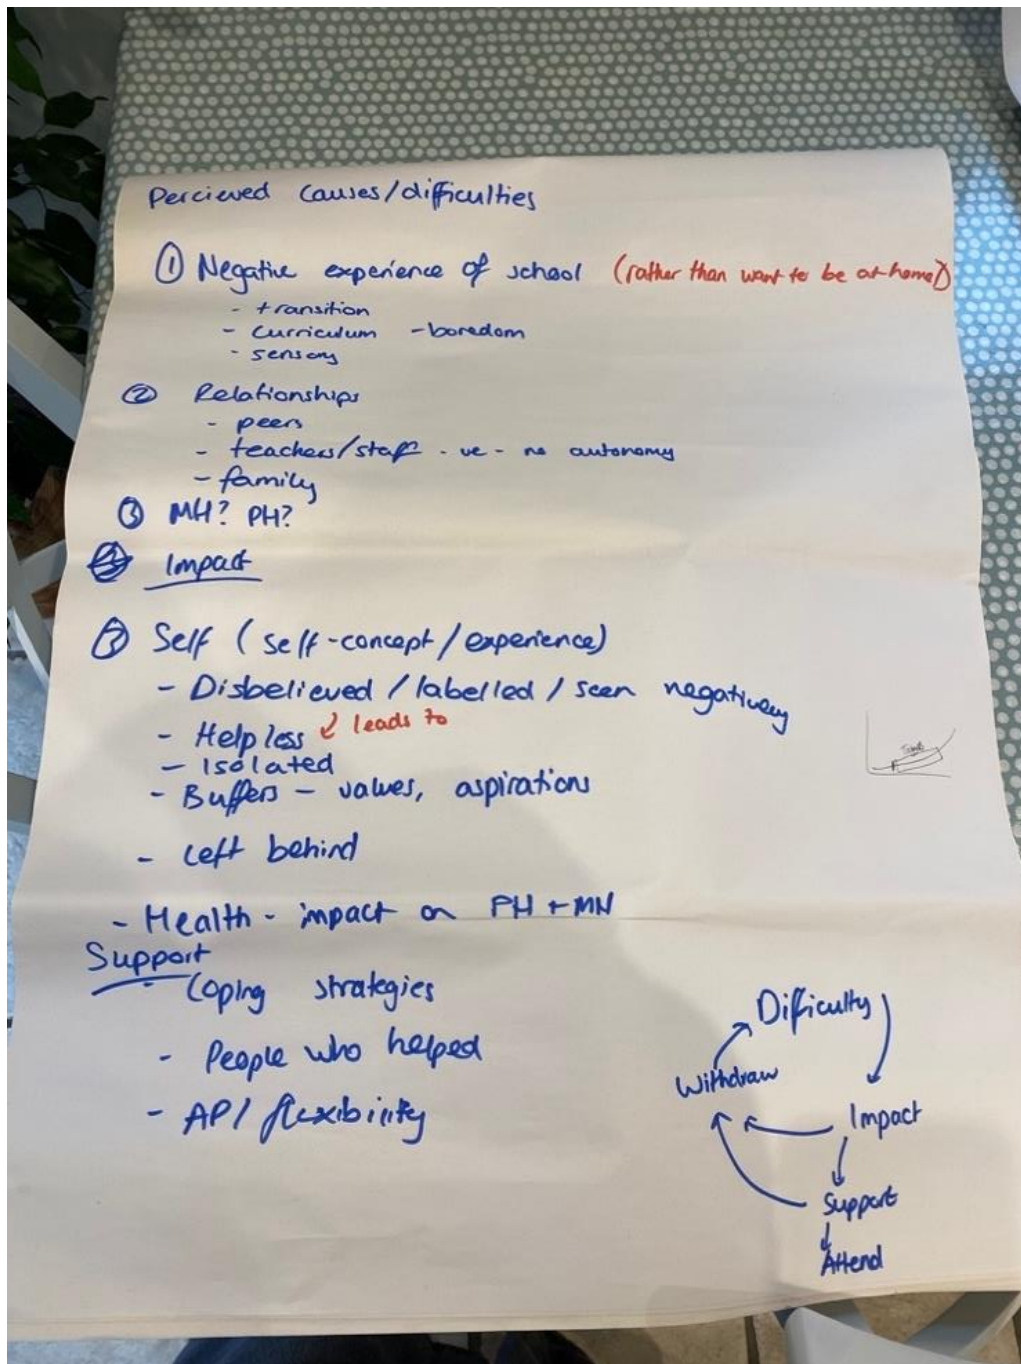 Percieved causes/difficulties
① Negative experience of school (rather than want to be at home)
- transition
- curriculum - boredom
- sensory
② Relationships
- peers
- teachers/staff - ve - no autonomy
- family
③ MH? PH?
Impact
Self (self-concept/experience)
- Disbelieved / labelled / seen negatively
- Helpless leads to
- Isolated
- Buffers - values, aspirations
- Left behind
- Health - impact on PH + MH
Support
- Coping strategies
- People who helped
- AP/flexibility
Difficulty
Withdraw
Impact
Support
Attend